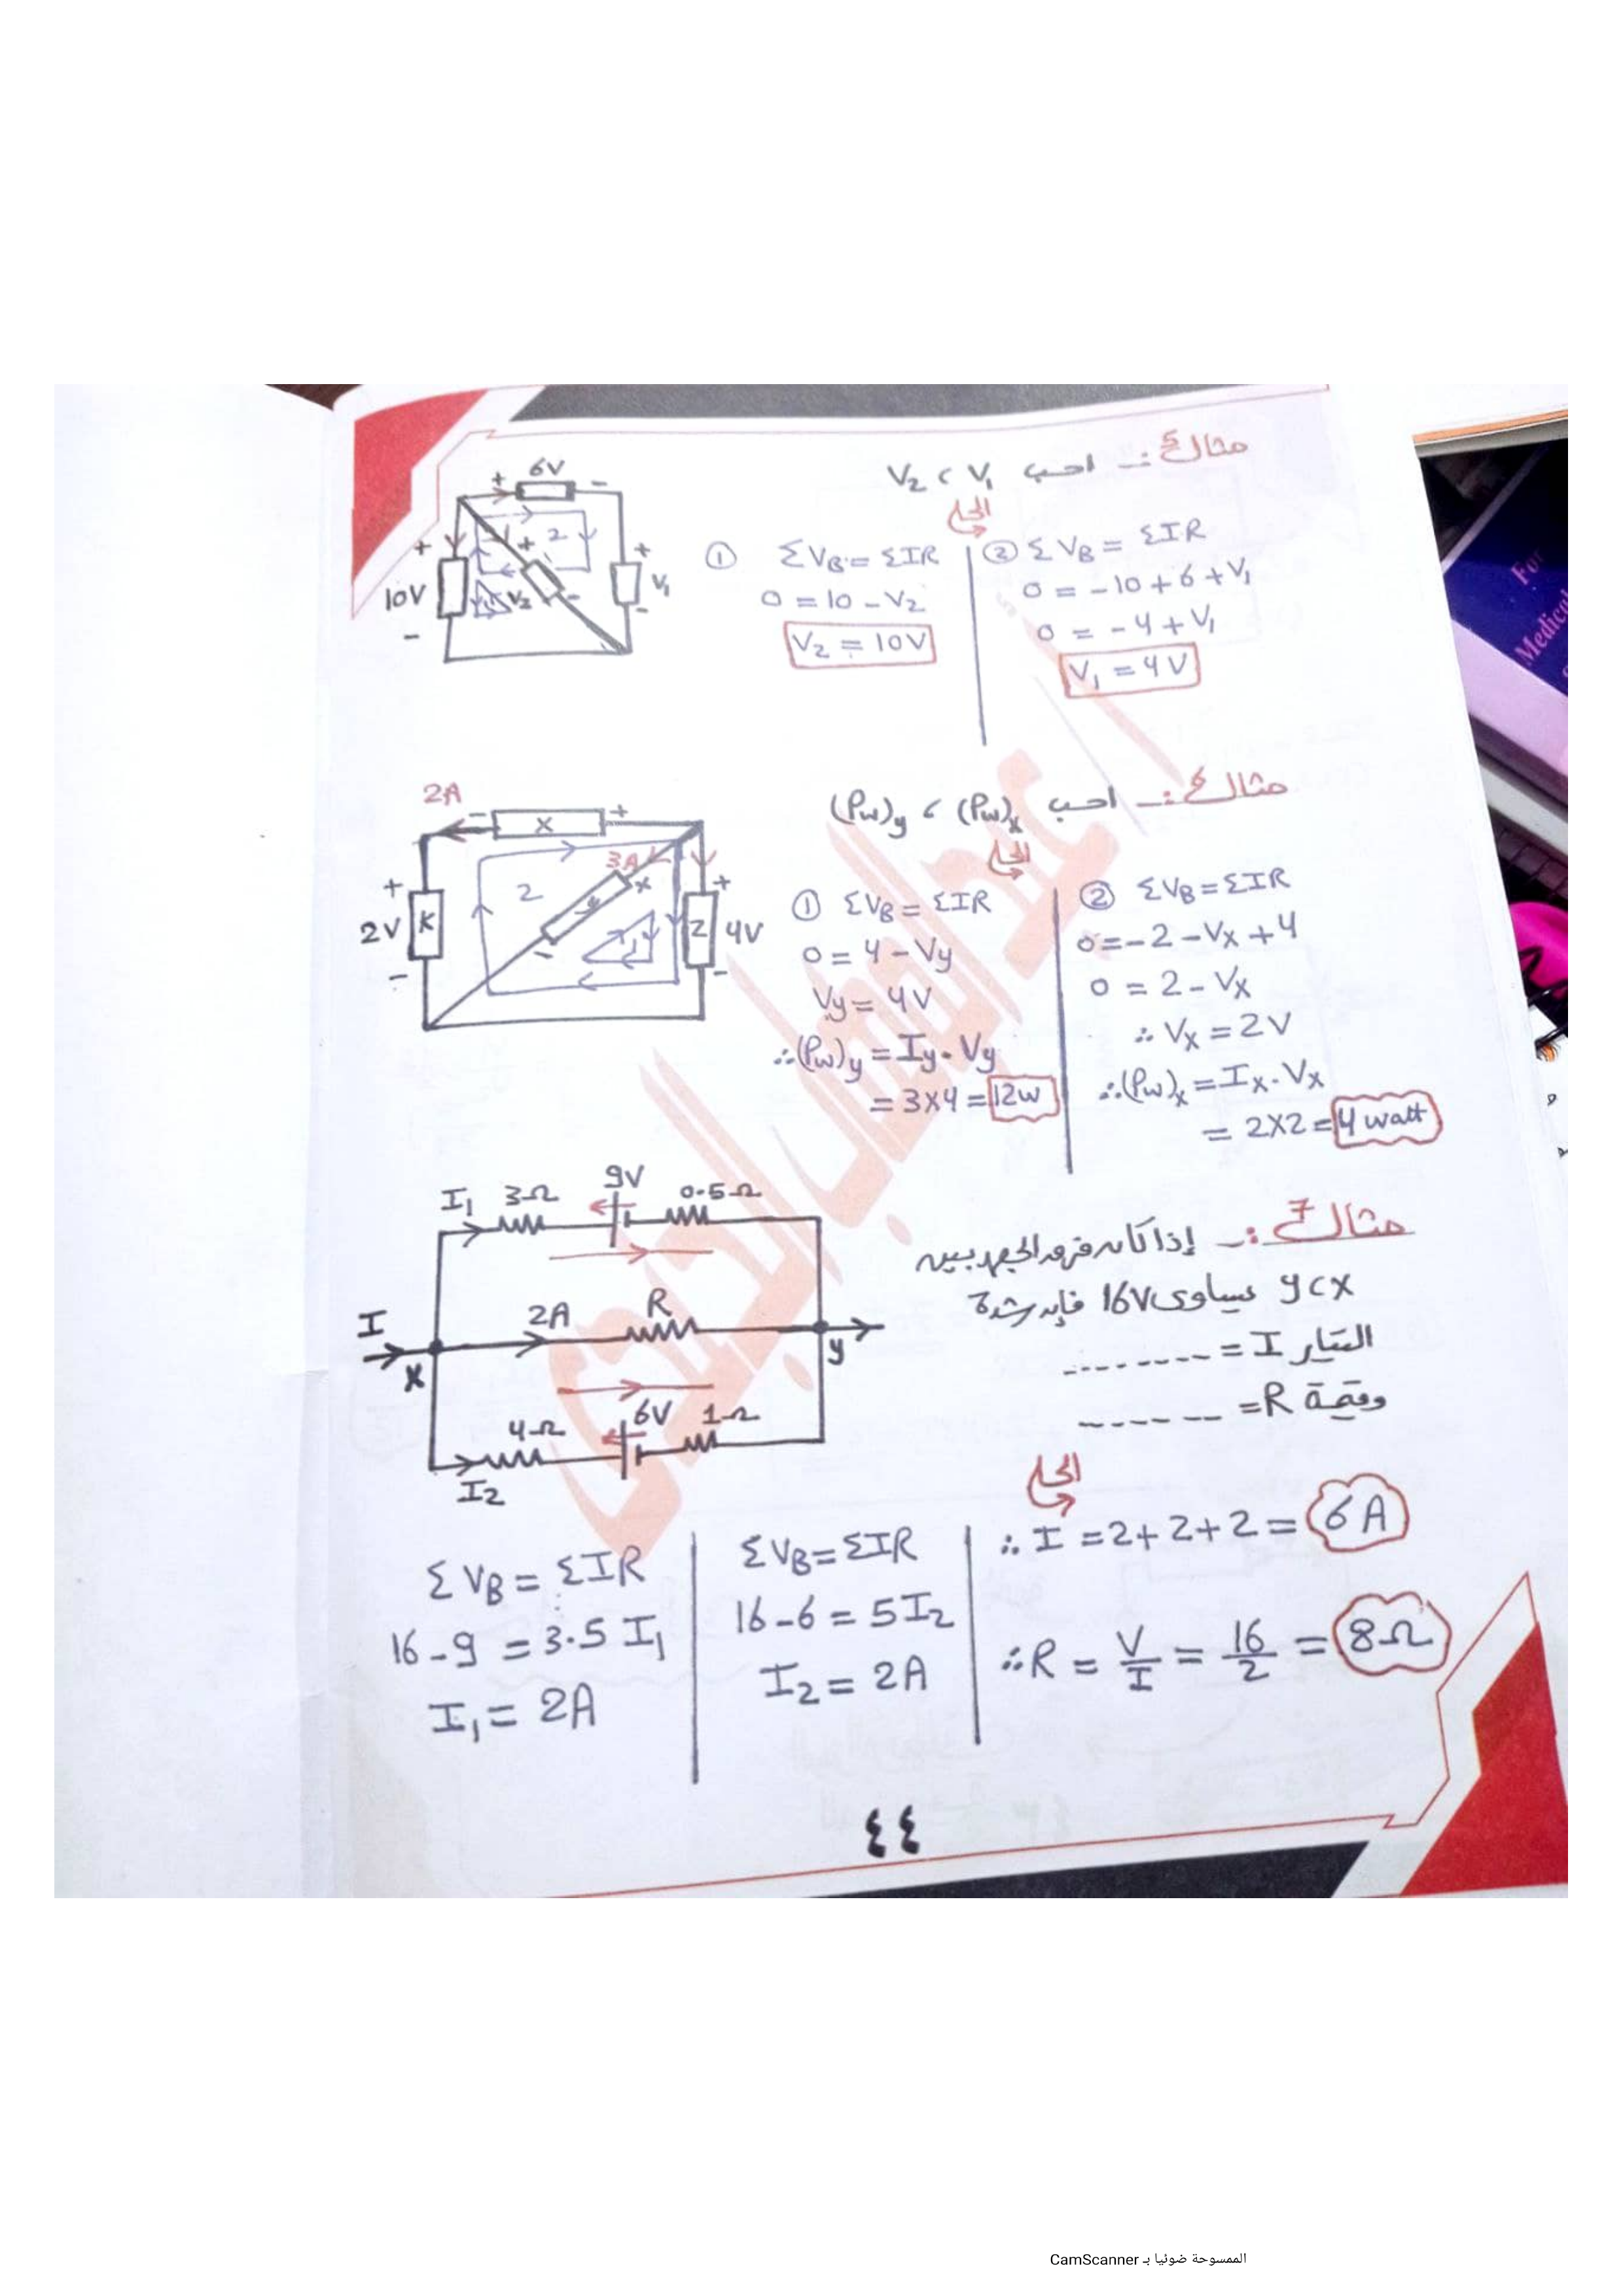 مثال 5 :- احسب V₁ ، V₂
الحل
6V
+ -
+ 10V -
2
1
+ V₂ -
+ V₁ -
① ΣVB = ΣIR
0 = 10 - V₂
V₂ = 10V
② ΣVB = ΣIR
0 = -10 + 6 + V₁
0 = -4 + V₁
V₁ = 4V
مثال 6 :- احسب (Pw)x ، (Pw)y
الحل
2A
- x +
3A
+ 2V K -
2
1
+ y -
+ Z 4V -
① ΣVB = ΣIR
0 = 4 - Vy
Vy = 4V
∴ (Pw)y = Iy . Vy
= 3x4 = 12w
② ΣVB = ΣIR
0 = -2 - Vx + 4
0 = 2 - Vx
∴ Vx = 2V
∴ (Pw)x = Ix . Vx
= 2x2 = 4 watt
مثال 7 :- إذا كان فرق الجهد بين
x ، y يساوى 16V فإن شدة
التيار I = --------
وقيمة R = ------
I₁ 3Ω 9V 0.5Ω
I 2A R
x y
4Ω 6V 1Ω
I₂
الحل
ΣVB = ΣIR
16 - 9 = 3.5 I₁
I₁ = 2A
ΣVB = ΣIR
16 - 6 = 5I₂
I₂ = 2A
∴ I = 2 + 2 + 2 = 6A
∴ R = V/I = 16/2 = 8Ω
٤٤
For
Medical
الممسوحة ضوئيا بـ CamScanner